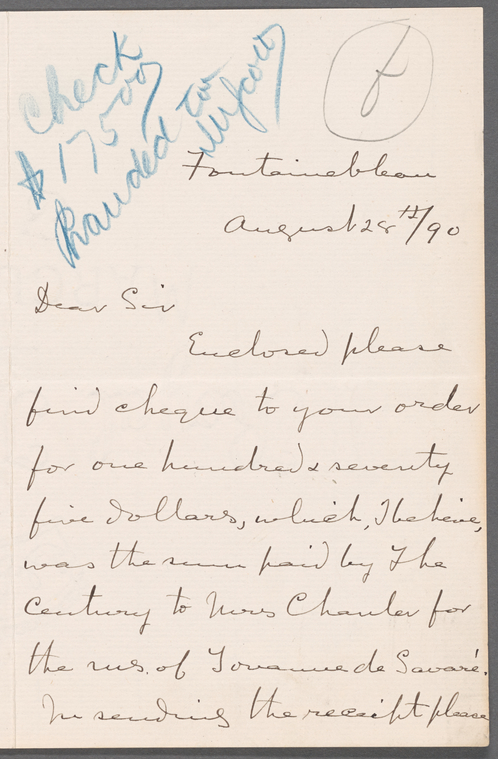 Check
$175.00
handed to
f
Fontainebleau
August 28th/90
Dear Sir
Enclosed please
find cheque to your order
for one hundred & seventy
five dollars, which, I believe,
was the sum paid by The
Century to Mrs Chanler for
the ms. of Jovanne de Savaré.
In sending the receipt please